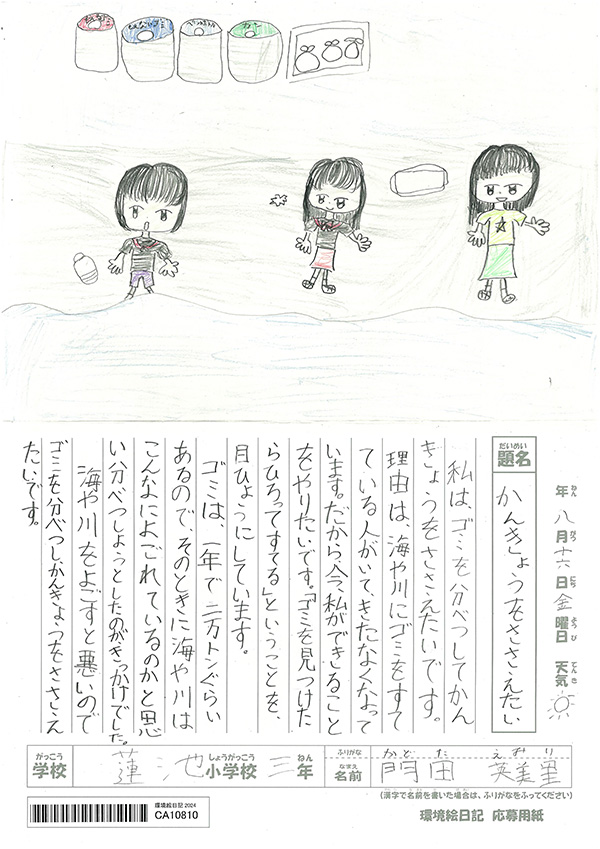 カン
年 八月十六日金曜日 天気
ねん がつ にち ようび てんき
だいめい
題名 かんきょうをささえたい
私は、ゴミを分べつしてかん
きょうをささえたいです。
理由は、海や川にゴミをすて
ている人がいて、きたなくなって
います。だから、今、私ができること
をやりたいです。「ゴミを見つけた
らひろってすてる」ということを、
月ひょうにしています。
ゴミは、一年で二万トンぐらい
あるので、そのときに海や川は
こんなによごれているのかと思
い分べつしようとしたのがきっかけでした。
海や川をよごすと悪いので
ゴミを分べつし、かんきょうをささえ
たいです。
がっこう しょうがっこう ねん
学校 蓮池小学校 三年
ふりがな かどた えみり
なまえ
名前 門田 英美里
(漢字で名前を書いた場合は、ふりがなをふってください)
環境絵日記 2024
CA10810
環境絵日記 応募用紙